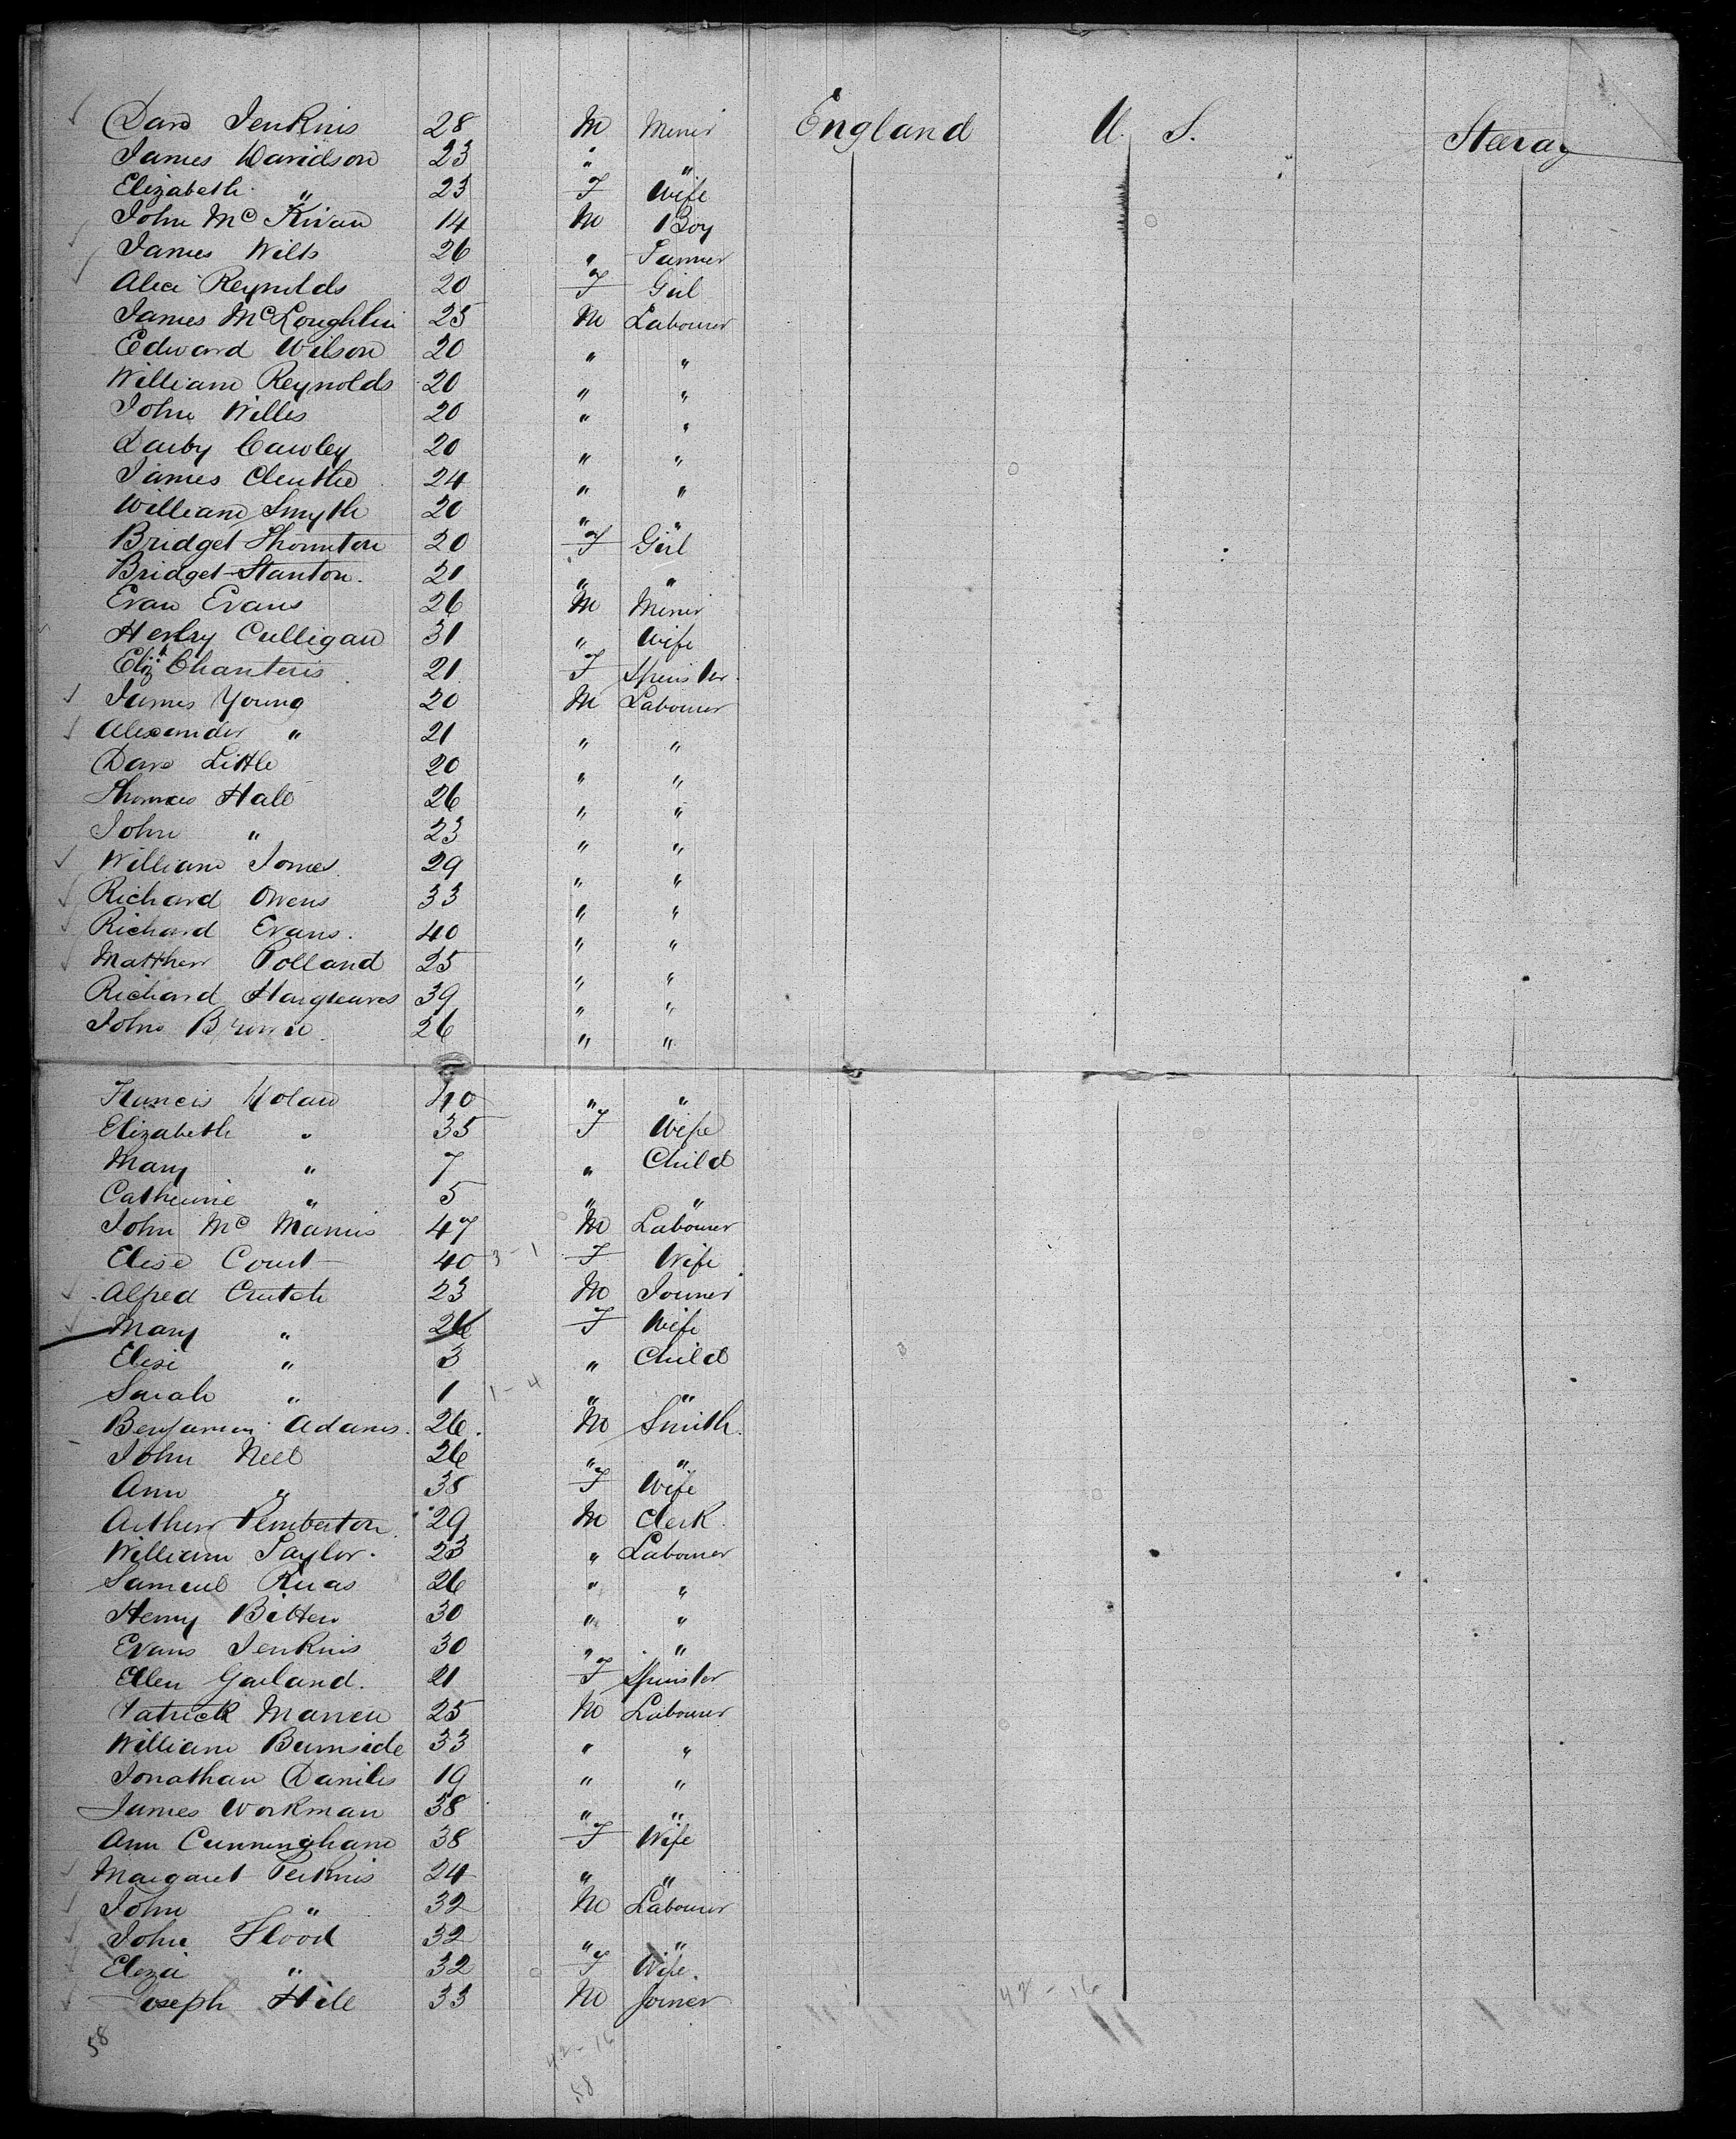 Davd Jenkins 28 M Miner England U. S. Steerag
James Davidson 23 " "
Elizabeth " 23 F Wife
John Mc Kivan 14 M Boy
James Wills 26 " Farmer
Alice Reynolds 20 F Girl
James McLoughlin 25 M Labourer
Edward Wilson 20 " "
William Reynolds 20 " "
John Willis 20 " "
Darby Cawley 20 " "
James 24 " "
William Smyth 20 " "
Bridget Thornton 20 F Girl
Bridget Stanton. 21 " "
Evan Evans 26 M Miner
Henry Culligan 31 " Wife
Eliz 21 F Spinster
James Young 20 M Labourer
Alexander " 21 " "
Davd Little 20 " "
Thomas Hall 26 " "
John " 23 " "
William Jones 29 " "
Richard Owens 33 " "
Richard Evans. 40 " "
Matthew Polland 25 " "
Richard Hargreaves 39 " "
John Browne 26 " "
Francis Nolan 40 " "
Elizabeth " 35 F Wife
Mary " 7 " Child
Catherine " 5 " "
John Mc Manus 47 M Labourer
Elise Court 40 3-1 F Wife
Alfred Crutch 23 M Joiner
Mary " 26 F Wife
Elise " 3 " Child
Sarah " 1 1-4 " "
Benjamin Adams. 26. M Smith
John Neel 26 " "
Ann " 38 F Wife
Arthur Pemberton 29 M Clerk
William Taylor. 23 " Labourer
Samuel 26 " "
Henry Bitten 30 " "
Evans Jenkins 30 " "
Ellen Garland. 21 F Spinster
Patrick 25 M Labourer
William Burnside 33 " "
Jonathan Daniels 19 " "
James Workman 38 " "
Ann Cunningham 38 F Wife
Margaret Perkins 24 " "
John " 32 M Labourer
John Flood 32 " "
Eliza " 32 F Wife.
Joseph Hill 33 M Joiner
42-16
58
42-16
58